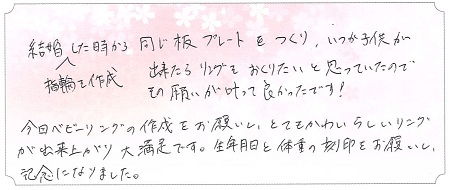 結婚した時から同じ板プレートをつくり、いつか子供が
指輪を作成
出来たらリングをおくりたいと思っていたので
その願いが叶って良かったです!
今回ベビーリングの作成をお願いし、とてもかわいらしいリング
が出来上がり大満足です。生年月日と体重の刻印をお願いし、
記念になりました。